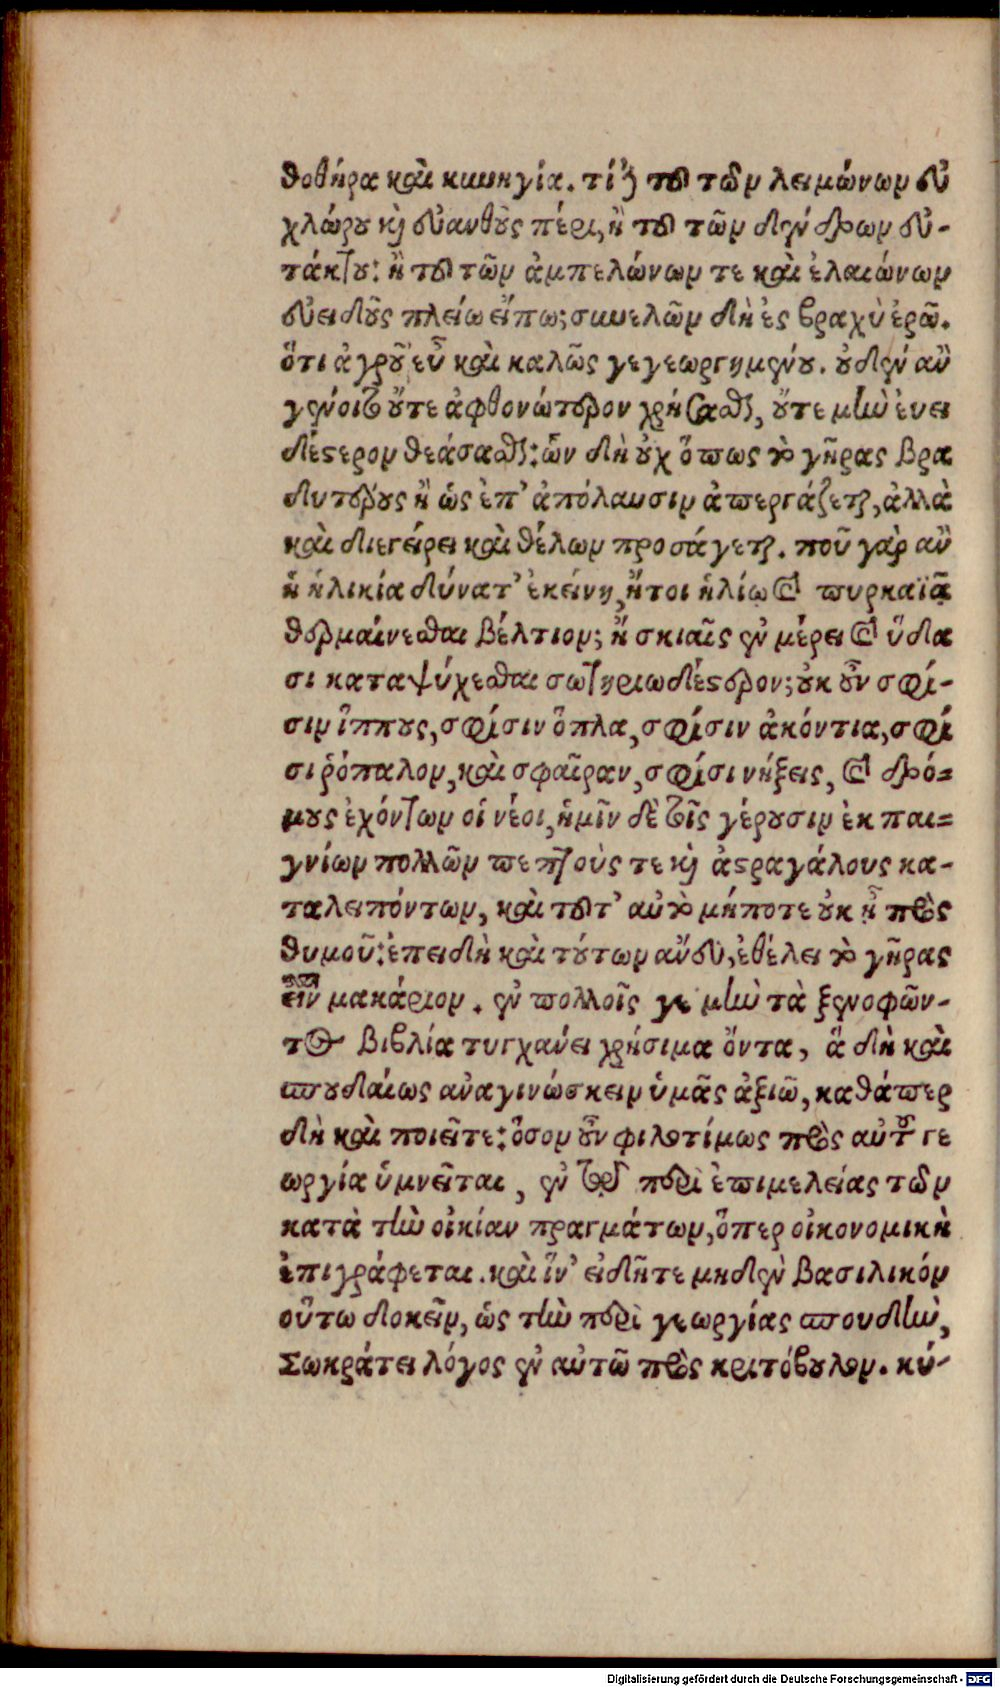 θοθήρα καὶ κυνηγία. τί δὲ τοῦ τῶν λειμώνων εὐ
χλώρου καὶ εὐανθοῦς πέρι, ἢ τοῦ τῶν δένδρων εὐ-
τάκτου: ἢ τοῦ τῶν ἀμπελώνων τε καὶ ἐλαιώνων
εὐειδοῦς πλείω εἴπω; συνελὼν δὴ ἐς βραχὺ ἐρῶ.
ὅτι ἀγροῦ εὖ καὶ καλῶς γεγεωργημένου. οὐδὲν ἂν
γένοιτο οὔτε ἀφθονώτερον χρήσασθαι, οὔτε μὴν ἐνει
δέστερον θεάσασθαι: ὧν δὴ οὐχ ὅπως τὸ γῆρας βρα
δυτέρους ἢ ὡς ἐπ' ἀπόλαυσιν ἀπεργάζεται, ἀλλὰ
καὶ διεγείρει καὶ θέλων προσάγεται. ποῦ γὰρ ἂν
ἡ ἡλικία δύνατ' ἐκείνη, ἤτοι ἡλίῳ καὶ πυρκαϊᾷ
θερμαίνεσθαι βέλτιον; ἢ σκιαῖς ἐν μέρει καὶ ὕδα
σι καταψύχεσθαι σωτηριωδέστερον; οὐκ οὖν σφί-
σιν ἵππους, σφίσιν ὅπλα, σφίσιν ἀκόντια, σφί
σι ῥόπαλον, καὶ σφαῖραν, σφίσι νήξεις, καὶ δρό-
μους ἐχόντων οἱ νέοι, ἡμῖν δὲ τοῖς γέρουσιν ἐκ παι-
γνίων πολλῶν πεττοὺς τε καὶ ἀστραγάλους κα-
ταλειπόντων, καὶ τοῦτ' αὐτὸ μήποτε οὐκ ᾖ πρὸς
θυμοῦ: ἐπειδὴ καὶ τούτων ἄνευ, ἐθέλει τὸ γῆρας
εἶναι μακάριον. ἐν πολλοῖς γε μὴν τὰ ξενοφῶν-
τος βιβλία τυγχάνει χρήσιμα ὄντα, ἃ δὴ καὶ
σπουδαίως ἀναγινώσκειν ὑμᾶς ἀξιῶ, καθάπερ
δὴ καὶ ποιεῖτε: ὅσον οὖν φιλοτίμως πρὸς αὐτοῦ γε
ωργία ὑμνεῖται, ἐν τῷ περὶ ἐπιμελείας τῶν
κατὰ τὴν οἰκίαν πραγμάτων, ὅπερ οἰκονομικὴ
ἐπιγράφεται. καὶ ἵν' εἰδῆτε μηδὲν βασιλικόν
οὕτω δοκεῖν, ὡς τὴν περὶ γεωργίας σπουδὴν,
Σωκράτει λόγος ἐν αὐτῷ πρὸς κριτόβουλον. κύ-
Digitalisierung gefördert durch die Deutsche Forschungsgemeinschaft - DFG